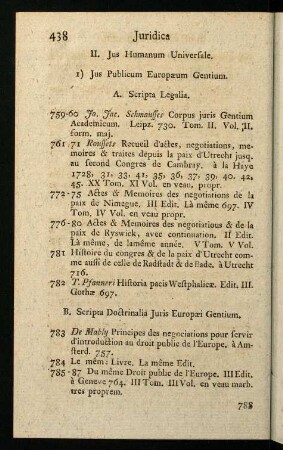 438 Juridica
II. Jus Humanum Universale.
1) Jus Publicum Europæum Gentium.
A. Scripta Legalia.
759-60 Jo. Jac. Schmausses Corpus juris Gentium
Academicum. Leipz. 730. Tom. II. Vol. JI.
form. maj.
761-71 Roussets Recueil d'actes, negotiations, me-
moires & traites depuis la paix d'Utrecht jusq.
au second Congres de Cambray. à la Haye
1728, 31, 33, 41, 35, 36, 37, 39, 40, 42,
45. XX Tom. XI Vol. en veau, propr.
772-75 Actes & Memoires des negotiations de la
paix de Nimegue. III Edit. Là même 697. IV
Tom. IV Vol. en veau propr.
776-80 Actes & Memoires des negotiations & de la
paix de Ryswick, avec continuation. II Edit.
Là même, de lamême année. V Tom. V Vol.
781 Histoire du congres & de la paix d'Utrecht com-
me aussi de celle de Radstadt & de Bade. à Utrecht
716.
782 T. Pfanneri Historia pacis Westphalicæ. Edit. III.
Gothæ 697.
B. Scripta Doctrinalia Juris Europæi Gentium.
783 De Mably Principes des negociations pour servir
d'introduction au droit public de l'Europe. à Am-
sterd. 757.
784 Le mêm: Livre. La même Edit.
785-87 Du même Droit public de l'Europe. III Edit.
à Geneve 764. III Tom. III Vol. en veau marb.
tres proprem.
788